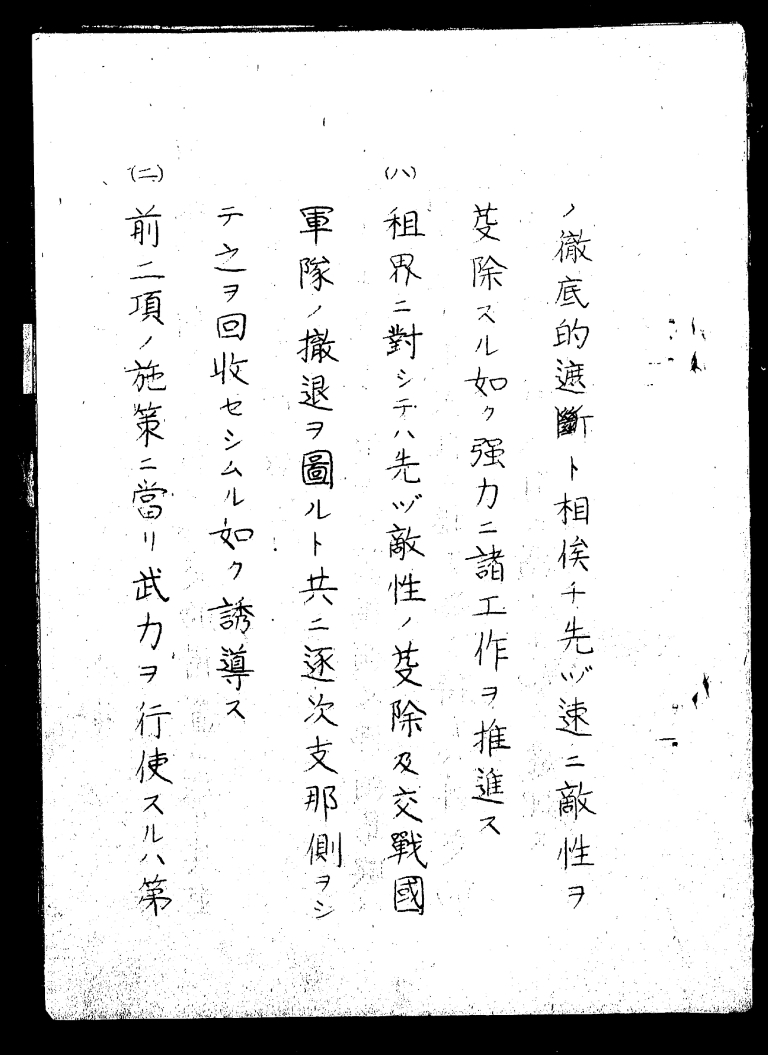 ノ徹底的遮斷ト相俟チ先ヅ速ニ敵性ヲ
芟除スル如ク强力ニ諸工作ヲ推進ス
(ハ) 租界ニ對シテハ先ヅ敵性ノ芟除及交戰國
軍隊ノ撤退ヲ圖ルト共ニ逐次支那側ヲシ
テ之ヲ回收セシムル如ク誘導ス
(ニ) 前二項ノ施策ニ當リ武力ヲ行使スルハ第